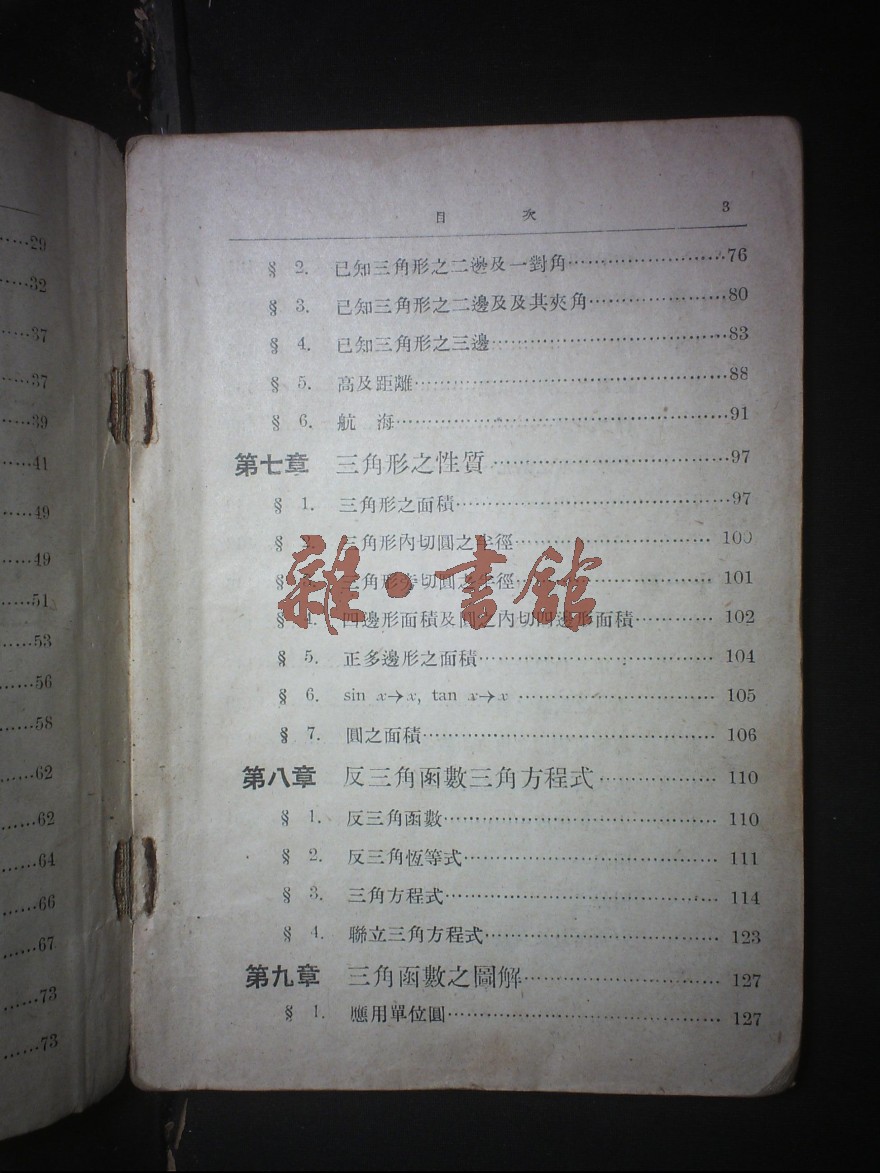 ……29
……32
……37
……37
……39
……41
……49
……49
……51
……53
……56
……58
……62
……62
……64
……66
……67
……73
……73
目 次 3
§ 2. 已知三角形之二邊及一對角……76
§ 3. 已知三角形之二邊及及其夾角……80
§ 4. 已知三角形之三邊……83
§ 5. 高及距離……88
§ 6. 航 海……91
第七章 三角形之性質……97
§ 1. 三角形之面積……97
§ 2. 三角形內切圓之半徑……100
§ 3. 三角形旁切圓之半徑……101
雜·書館
§ 4. 四邊形面積及圓之內切四邊形面積……102
§ 5. 正多邊形之面積……104
§ 6. sin x→x, tan x→x……105
§ 7. 圓之面積……106
第八章 反三角函數三角方程式……110
§ 1. 反三角函數……110
§ 2. 反三角恆等式……111
§ 3. 三角方程式……114
§ 4. 聯立三角方程式……123
第九章 三角函數之圖解……127
§ 1. 應用單位圓……127